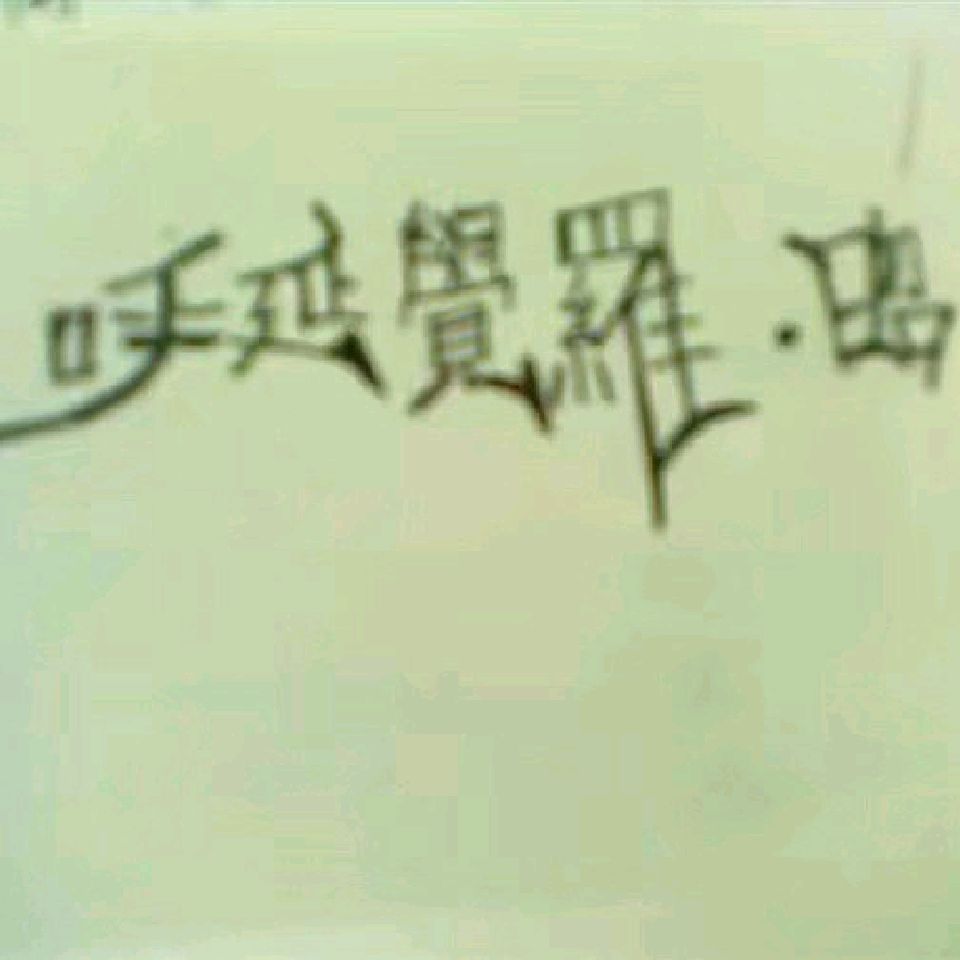 呼延覺羅·